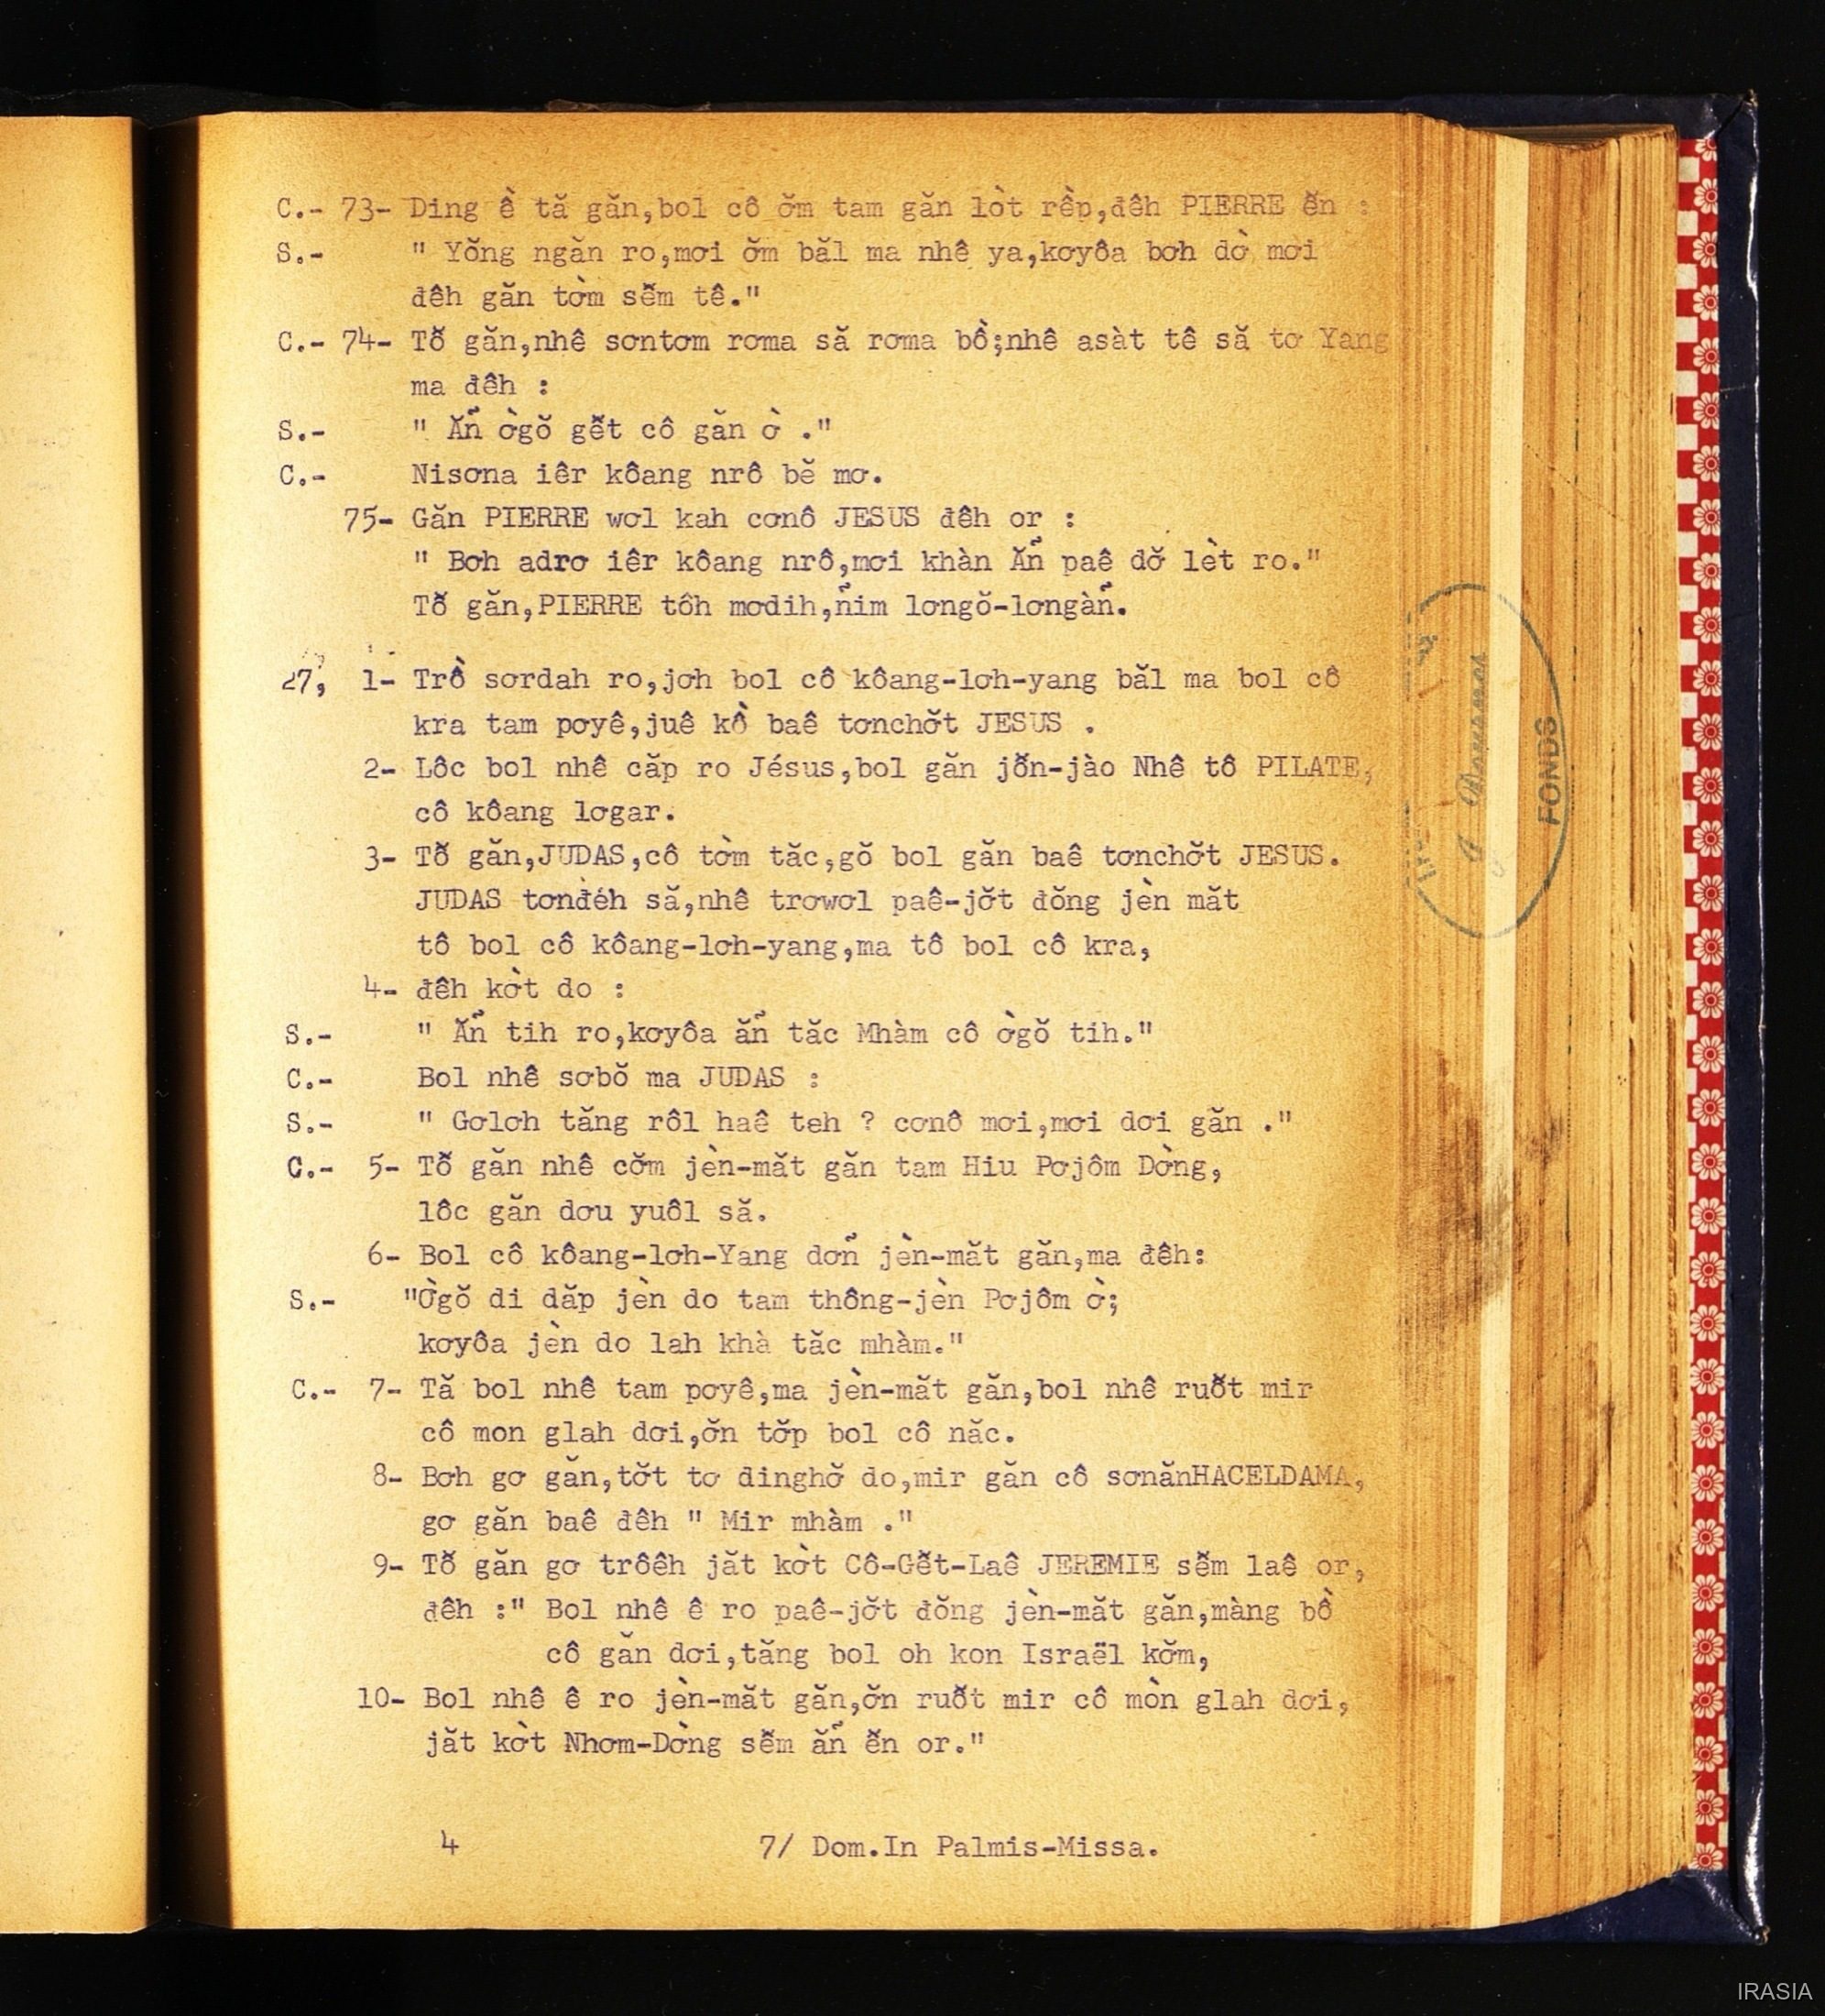 C.- 73- Ding ê̆̀ tă găn,bol cô ơ̆m tam găn lòt rê̆̀p,đêh PIERRE ê̆n :
S.- " Yŏng ngăn ro,mơi ơ̆m băl ma nhê ya,kơyôa bơh dờ mơi
đêh găn tờm sê̆m tê."
C.- 74- Tô̆ găn,nhê sơntơm rơma să rơma bồ;nhê asàt tê să tơ Yang
ma đêh :
S.- " Ăn̉ ờgŏ gê̆t cô găn ờ ."
C.- Nisơna iêr kôang nrô bĕ mơ.
75- Găn PIERRE wơl kah cơnô JESUS đêh or :
" Bơh adrơ iêr kôang nrô,mơi khàn Ăn̉ paê dơ̆ lèt ro."
Tô̆ găn,PIERRE tôh mơdih,n̉im lơngŏ-lơngàn̉.
27, 1- Trồ sơrdah ro,jơh bol cô kôang-lơh-yang băl ma bol cô
kra tam pơyê,juê kồ baê tơnchơ̆t JESUS .
2- Lôc bol nhê căp ro Jésus,bol găn jô̆n-jào Nhê tô PILATE,
cô kôang lơgar.
3- Tô̆ găn,JUDAS,cô tờm tăc,gŏ bol găn baê tơnchơ̆t JESUS.
JUDAS tơnđéh să,nhê trơwơl paê-jơ̆t đŏng jèn măt
tô bol cô kôang-lơh-yang,ma tô bol cô kra,
4- đêh kờt do :
S.- " Ăn̉ tih ro,kơyôa ăn̉ tăc Mhàm cô ờgŏ tih."
C.- Bol nhê sơbŏ ma JUDAS :
S.- " Gơlơh tăng rôl haê teh ? cơnô mơi,mơi dơi găn ."
C.- 5- Tô̆ găn nhê cơ̆m jèn-măt găn tam Hiu Pơjôm Dờng,
lôc găn dơu yuôl să.
6- Bol cô kôang-lơh-Yang dơn̉ jèn-măt găn,ma đêh:
S.- "Ờgŏ di dăp jèn do tam thông-jèn Pơjôm ờ;
kơyôa jèn do lah khà tăc mhàm."
C.- 7- Tă bol nhê tam pơyê,ma jèn-măt găn,bol nhê ruô̆t mir
cô mon glah dơi,ơ̆n tơ̆p bol cô năc.
8- Bơh gơ găn,tơ̆t tơ dinghơ̆ do,mir găn cô sơnănHACELDAMA,
gơ găn baê đêh " Mir mhàm ."
9- Tô̆ găn gơ trôêh jăt kờt Cô-Gê̆t-Laê JEREMIE sê̆m laê or,
đêh :" Bol nhê ê ro paê-jơ̆t đŏng jèn-măt găn,màng bồ
cô găn dơi,tăng bol oh kon Israël kơ̆m,
10- Bol nhê ê ro jèn-măt găn,ơ̆n ruô̆t mir cô mòn glah dơi,
jăt kờt Nhơm-Dờng sê̆m ăn̉ ê̆n or."
4 7/ Dom.In Palmis-Missa.
FONDS
IRASIA